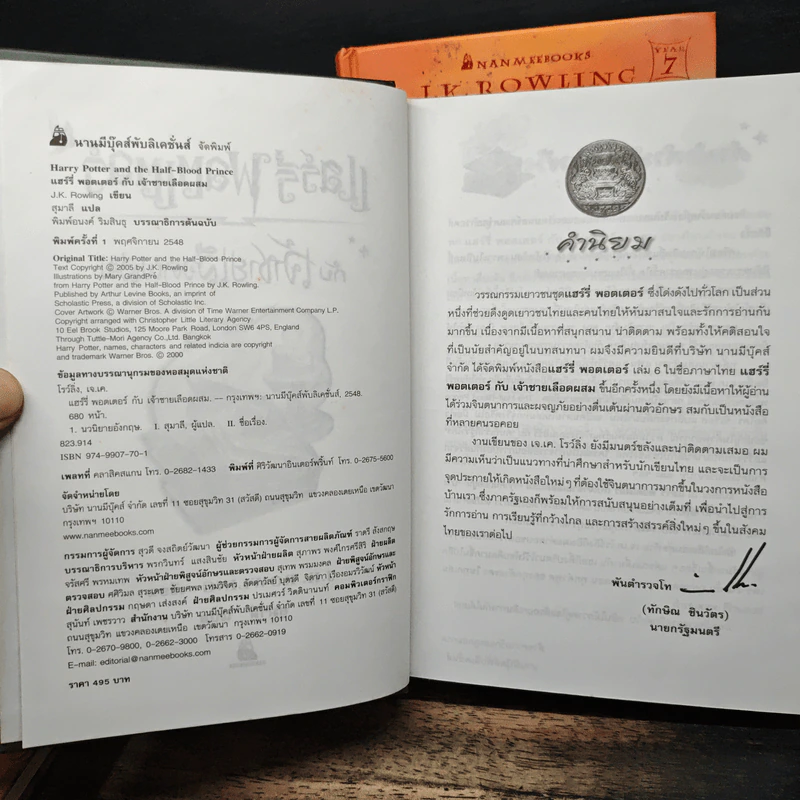 NANMEEBOOKS
J.K. ROWLING
YEAR
7
นานมีบุ๊คส์พับลิเคชั่นส์ จัดพิมพ์
Harry Potter and the Half-Blood Prince
แฮร์รี่ พอตเตอร์ กับ เจ้าชายเลือดผสม
J.K. Rowling เขียน
สุมาลี แปล
พิมพ์อนงค์ ริมสินธุ บรรณาธิการต้นฉบับ
พิมพ์ครั้งที่ 1 พฤศจิกายน 2548
Original Title: Harry Potter and the Half-Blood Prince
Text Copyright © 2005 by J.K. Rowling
Illustrations by Mary GrandPré
from Harry Potter and the Half-Blood Prince by J.K. Rowling.
Published by Arthur Levine Books, an imprint of
Scholastic Press, a division of Scholastic Inc.
Cover Artwork © Warner Bros. A division of Time Warner Entertainment Company L.P.
Copyright arranged with Christopher Little Literary Agency.
10 Eel Brook Studios, 125 Moore Park Road, London SW6 4PS, England
Through Tuttle-Mori Agency Co.,Ltd. Bangkok
Harry Potter, names, characters and related indicia are copyright
and trademark Warner Bros. © 2000
ข้อมูลทางบรรณานุกรมของหอสมุดแห่งชาติ
โรว์ลิ่ง, เจ.เค.
แฮร์รี่ พอตเตอร์ กับ เจ้าชายเลือดผสม. — กรุงเทพฯ: นานมีบุ๊คส์พับลิเคชั่นส์, 2548.
680 หน้า.
1. นวนิยายอังกฤษ. I. สุมาลี, ผู้แปล. II. ชื่อเรื่อง.
823.914
ISBN 974-9907-70-1
เพลทที่ คลาสิคสแกน โทร. 0-2682-1433 พิมพ์ที่ ศิริวัฒนาอินเตอร์พริ้นท์ โทร. 0-2675-5600
จัดจำหน่ายโดย
บริษัท นานมีบุ๊คส์ จำกัด เลขที่ 11 ซอยสุขุมวิท 31 (สวัสดี) ถนนสุขุมวิท แขวงคลองเตยเหนือ เขตวัฒนา
กรุงเทพฯ 10110
www.nanmeebooks.com
กรรมการผู้จัดการ สุวดี จงสถิตย์วัฒนา ผู้ช่วยกรรมการผู้จัดการสายผลิตภัณฑ์ ราตรี ลังสกฤษ
บรรณาธิการบริหาร พรกวินทร์ แสงสินชัย หัวหน้าฝ่ายผลิต สุภาพร พงศ์ไกรศรีสิริ ฝ่ายผลิต
จรัสศรี พรหมเทพ หัวหน้าฝ่ายพิสูจน์อักษรและตรวจสอบ สุเทพ พรมมงคล ฝ่ายพิสูจน์อักษรและ
ตรวจสอบ ศศิวิมล สุระเดช ชัยยศพล เหมวิจิตร ลัดดาวัลย์ บุตรดี จิดาภา เรืองอมรวิวัฒน์ หัวหน้า
ฝ่ายศิลปกรรม กฤษดา เส่งสงค์ ฝ่ายศิลปกรรม ปรเมศวร์ วิตตินานนท์ คอมพิวเตอร์กราฟิก
สุนันท์ เพชรวาว สำนักงาน บริษัท นานมีบุ๊คส์พับลิเคชั่นส์ จำกัด เลขที่ 11 ซอยสุขุมวิท 31 (สวัสดี)
ถนนสุขุมวิท แขวงคลองเตยเหนือ เขตวัฒนา กรุงเทพฯ 10110
โทร. 0-2670-9800, 0-2662-3000 โทรสาร 0-2662-0919
E-mail: editorial@nanmeebooks.com
ราคา 495 บาท
คำนิยม
วรรณกรรมเยาวชนชุดแฮร์รี่ พอตเตอร์ ซึ่งโด่งดังไปทั่วโลก เป็นส่วน
หนึ่งที่ช่วยดึงดูดเยาวชนไทยและคนไทยให้หันมาสนใจและรักการอ่านกัน
มากขึ้น เนื่องจากมีเนื้อหาที่สนุกสนาน น่าติดตาม พร้อมทั้งให้คติสอนใจ
ที่เป็นนัยสำคัญอยู่ในบทสนทนา ผมจึงมีความยินดีที่บริษัท นานมีบุ๊คส์
จำกัด ได้จัดพิมพ์หนังสือแฮร์รี่ พอตเตอร์ เล่ม 6 ในชื่อภาษาไทย แฮร์รี่
พอตเตอร์ กับ เจ้าชายเลือดผสม ขึ้นอีกครั้งหนึ่ง โดยยังมีเนื้อหาให้ผู้อ่าน
ได้ร่วมจินตนาการและผจญภัยอย่างตื่นเต้นผ่านตัวอักษร สมกับเป็นหนังสือ
ที่หลายคนรอคอย
งานเขียนของ เจ.เค. โรว์ลิ่ง ยังมีมนตร์ขลังและน่าติดตามเสมอ ผม
มีความเห็นว่าเป็นแนวทางที่น่าศึกษาสำหรับนักเขียนไทย และจะเป็นการ
จุดประกายให้เกิดหนังสือใหม่ๆ ที่ต้องใช้จินตนาการมากขึ้นในวงการหนังสือ
บ้านเรา ซึ่งภาครัฐเองก็พร้อมให้การสนับสนุนอย่างเต็มที่ เพื่อนำไปสู่การ
รักการอ่าน การเรียนรู้ที่กว้างไกล และการสร้างสรรค์สิ่งใหม่ๆ ขึ้นในสังคม
ไทยของเราต่อไป
พันตำรวจโท
(ทักษิณ ชินวัตร)
นายกรัฐมนตรี